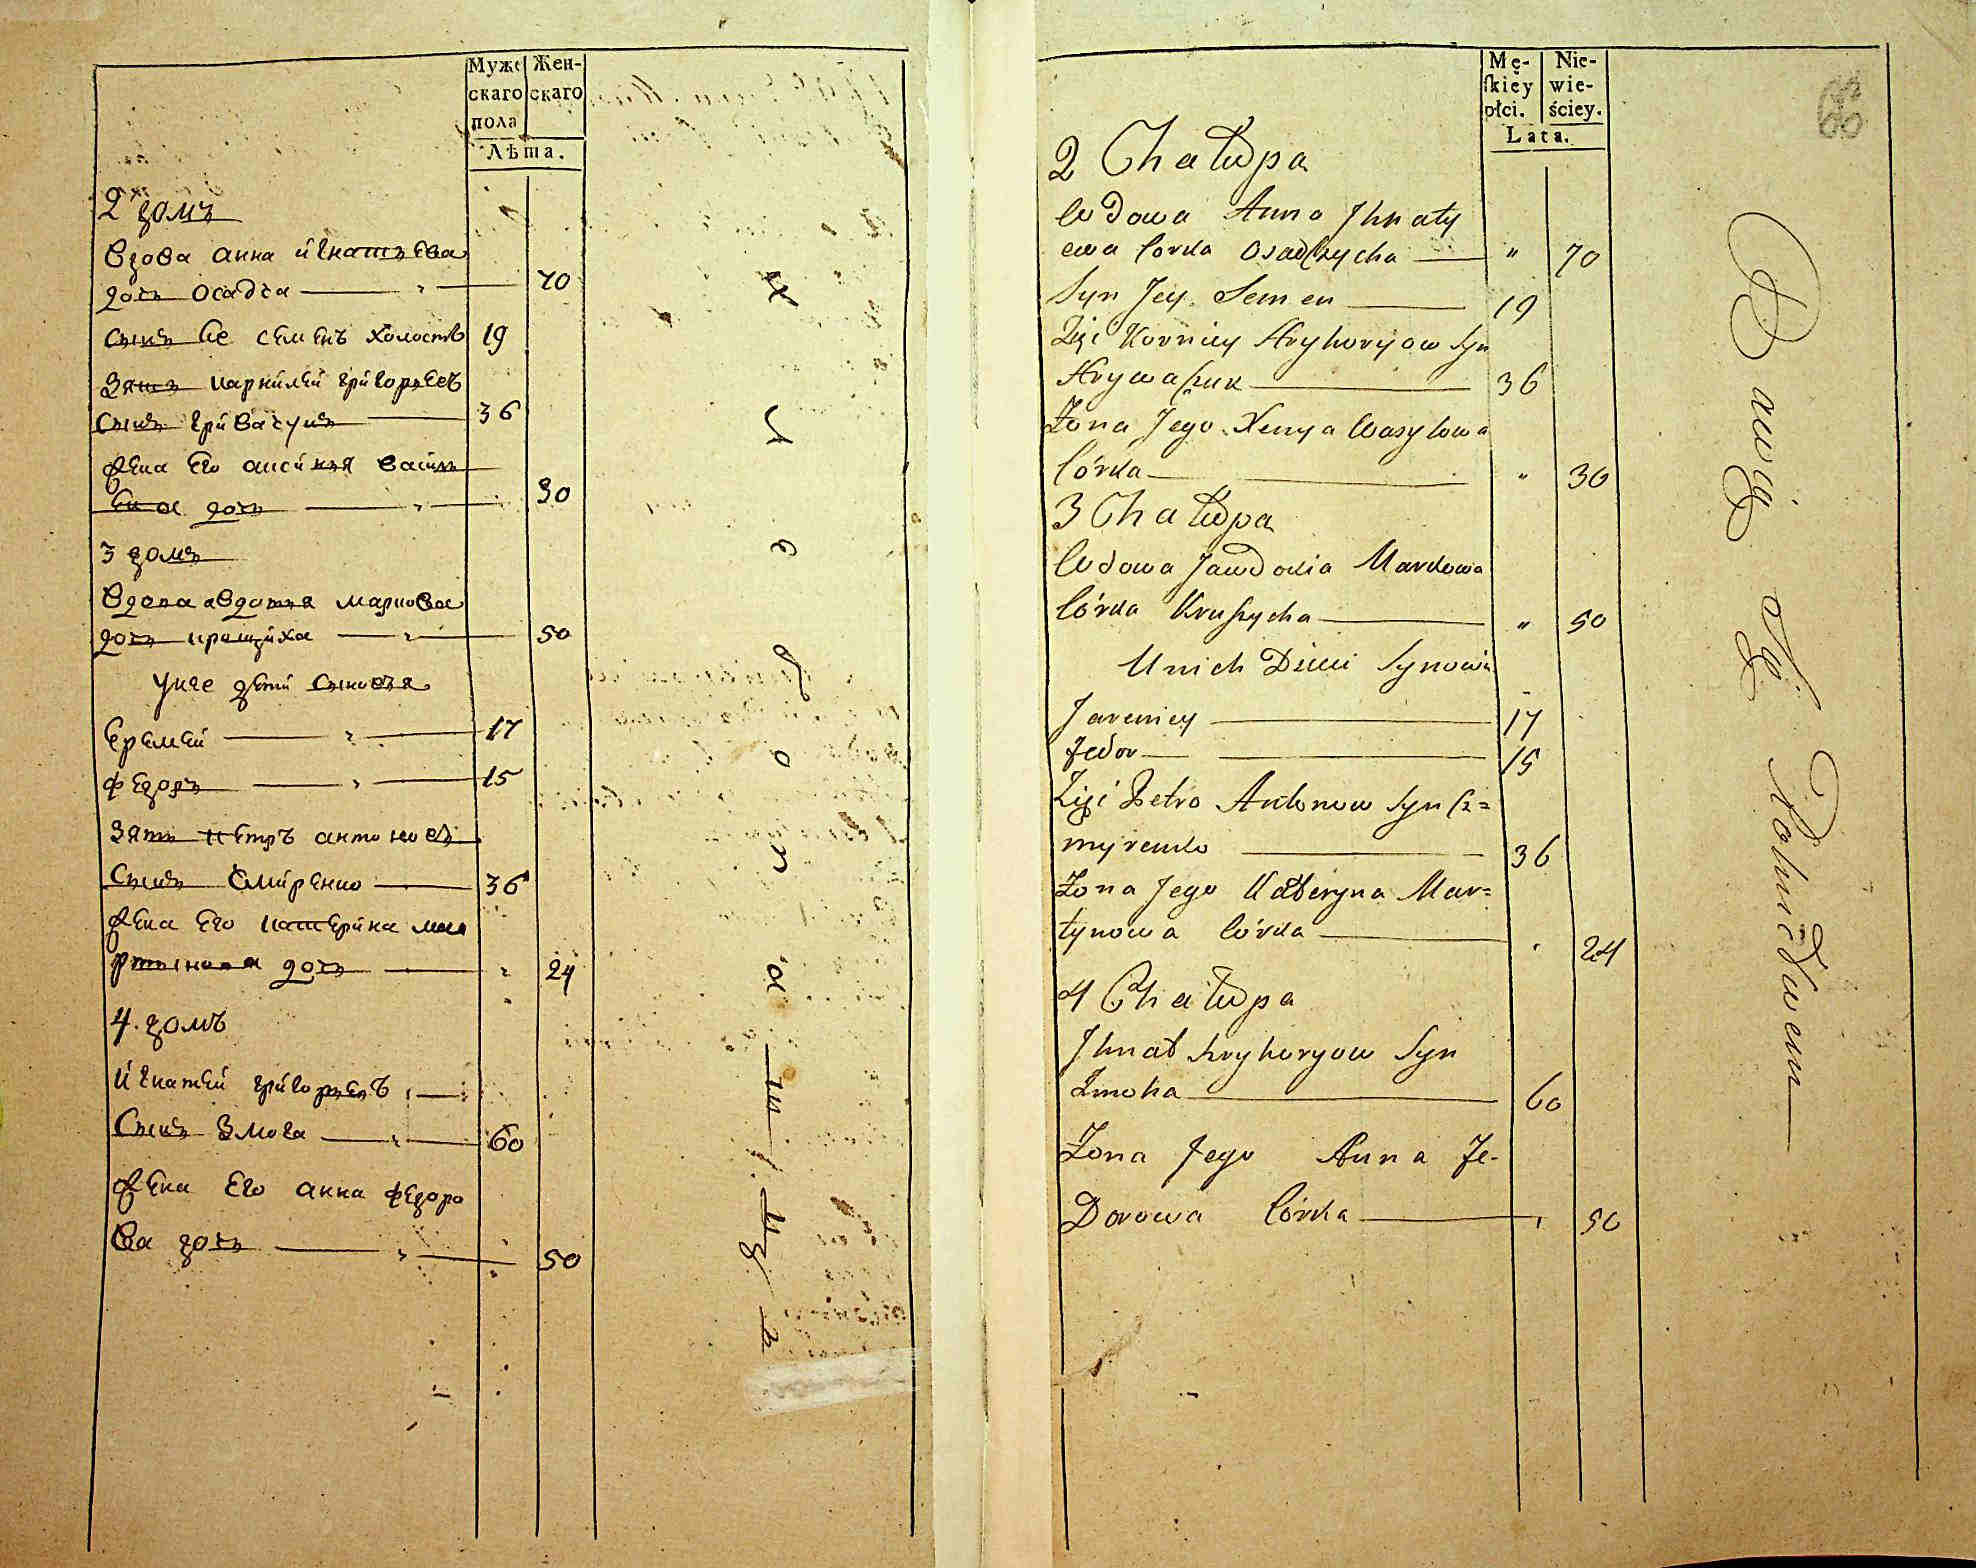 Муже
скаго
пола
Жен-
скаго
Лѣта.
2 домъ
Вдова анна игнатьева
дочь осадча — " — 70
сынъ ее семенъ холостъ 19
Зять карнилей григорьевъ
сынъ гривачукъ — 36
жена его аксинья василь
ева дочь — " — 30
3 домъ
Вдова авдотья маркова
дочь кращиха — " — 50
у нее дети сыновья
Еремей — " — 17
федоръ — " — 15
Зять петръ антоновъ
сынъ смиренко — 36
жена его катерина ма
ртынова дочь — " 24
4. домъ
игнатей григорьевъ
Сынъ Змога — " — 60
жена его анна федоро
ва дочь — " — 50
Mę-
ſkiey
płci.
Nie-
wie-
ściey.
Lata.
2 Chałupa
Wdowa Anna Jhnaty
ewa Corka Osadczycha — " 70
Syn Jey Semen — 19
Zięć Korniey Hryhoryow Syn
Hrywaczuk — 36
Żona Jego Xenya Wasylowa
Córka — " 30
3 Chałupa
Wdowa Jawdokia Markowa
Córka Kruszycha — " 50
U nich Dzieci Synowie
Jaremiey — 17
Fedor — 15
Zięć Petro Antonow Syn Sz=
myrenko — 36
Żona Jego Kateryna Mar=
tynowa Córka — " 24
4 Chałupa
Jhnat Hryhoryow Syn
Zmoha — 60
Żona Jego Anna Fe-
dorowa Córka — " 50
Bawią się Rolnictwem